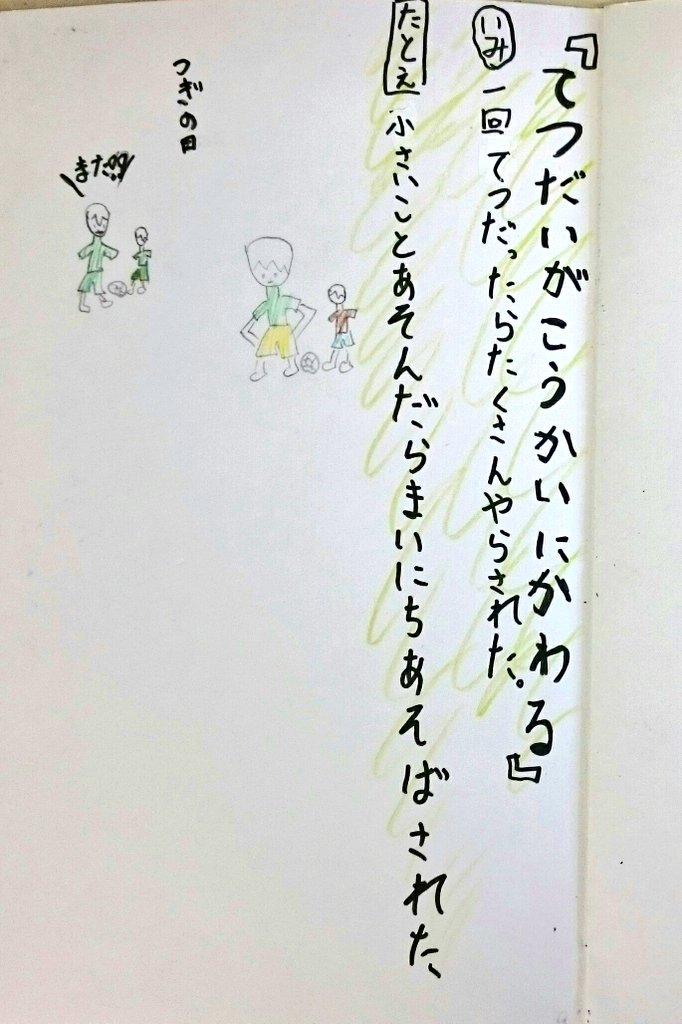 『てつだいがこうかいにかわる』
いみ 一回てつだったらたくさんやらされた。
たとえ 小さいことあそんだらまいにちあそばされた、
つぎの日
まだ!?